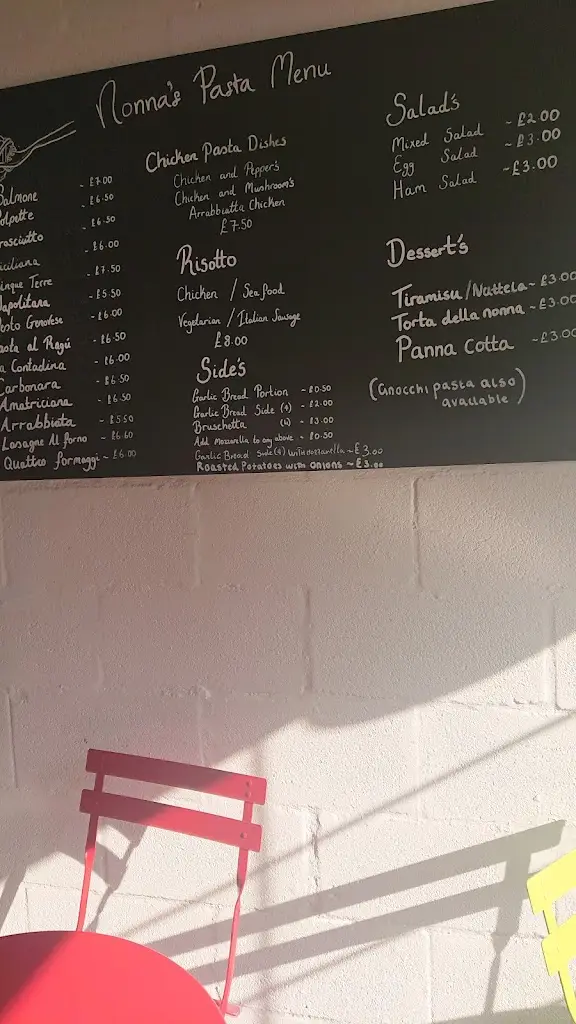 Nonna's Pasta Menu
Salmone - £7.00
Polpette - £6.50
Prosciutto - £6.50
Siciliana - £6.00
Cinque Terre - £7.50
Napolitana - £5.50
Pesto Genovese - £6.00
Pasta al Ragú - £6.50
La Contadina - £6.00
Carbonara - £6.50
Amatriciana - £6.50
Arrabbiata - £5.50
Lasagne Al forno - £6.60
Quattro formaggi ~ £6.00
Chicken Pasta Dishes
Chicken and Pepper's
Chicken and Mushroom's
Arrabbiatta Chicken
£7.50
Risotto
Chicken / Seafood
Vegetarian / Italian Sausage
£8.00
Side's
Garlic Bread Portion - £0.50
Garlic Bread Side (4) - £2.00
Bruschetta (4) - £3.00
Add Mozzarella to any above - £0.50
Garlic Bread Side (4) with mozzarella ~ £3.00
Roasted Potatoes with onions ~ £3.00
Salad's
Mixed Salad - £2.00
Egg Salad - £3.00
Ham Salad - £3.00
Dessert's
Tiramisu/Nuttela - £3.00
Torta della nonna - £3.00
Panna Cotta - £3.00
(Gnocchi pasta also
available)